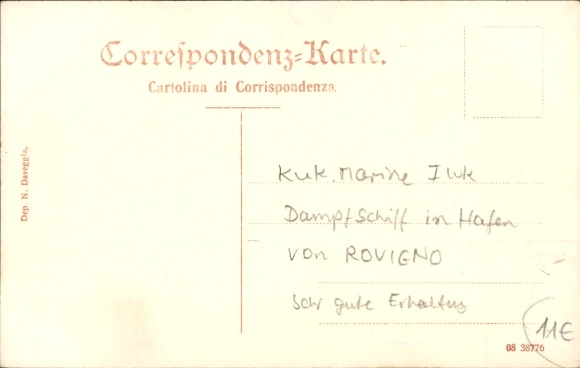 Correspondenz-Karte.
Cartolina di Corrispondenza.
Dep. N. Daveggia.
KuK. Marine
Dampfschiff in Hafen
von ROVIGNO
Sehr gute Erhaltung
11€
08 38776